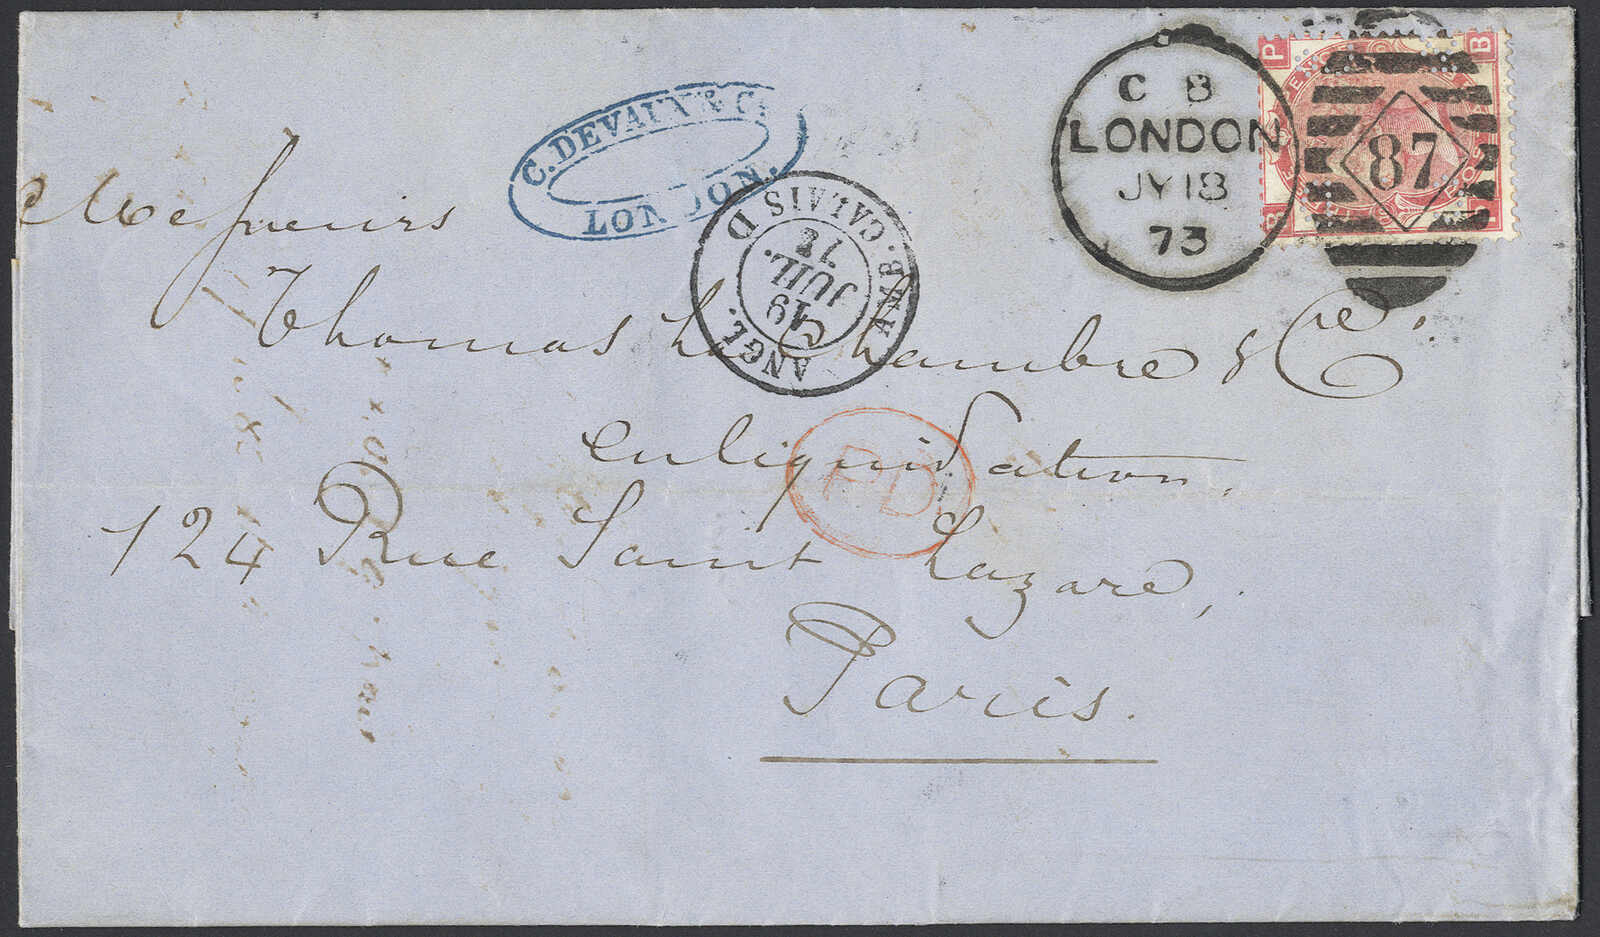 C. DEVAUX & Co.
LONDON.
C 8
LONDON
JY 18
73
87
P B
B P
ANGL. AMB. CALAIS D
19
JUIL.
73
PD
Messieurs
Thomas La Chambre & Cie.
en liquidation,
124 Rue Saint Lazare,
Paris.